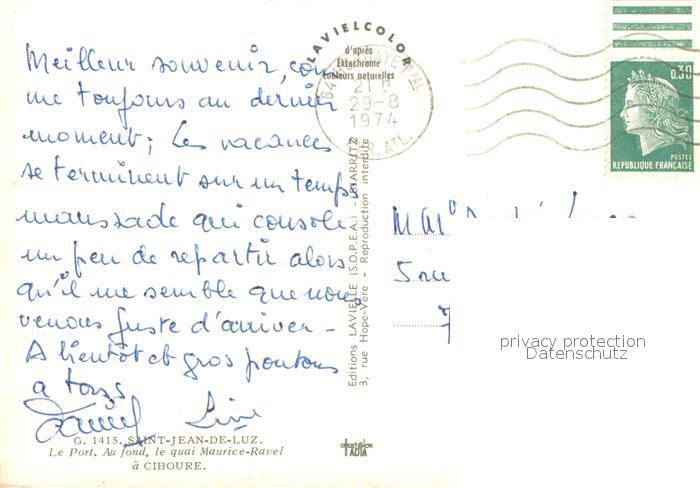 Meilleur souvenir, com
me toujours au dernier
moment; Les vacances
se terminent sur un temps
maussade qui console
un peu de repartir alors
qu'il me semble que nous
venons juste d'arriver -
A bientôt et gros
a tous
G. 1415. SAINT-JEAN-DE-LUZ.
Le Port. Au fond, le quai Maurice-Ravel
à CIBOURE.
LAVIELCOLOR
d'après
Ektachrome
couleurs naturelles
21 H
29-8
1974
ATL.
Editions LAVIELLE (S.O.P.E.A.) - BIARRITZ
3, rue Hope-Vère - Reproduction interdite
0,30
POSTES
REPUBLIQUE FRANÇAISE
5 rue
7
privacy protection
Datenschutz